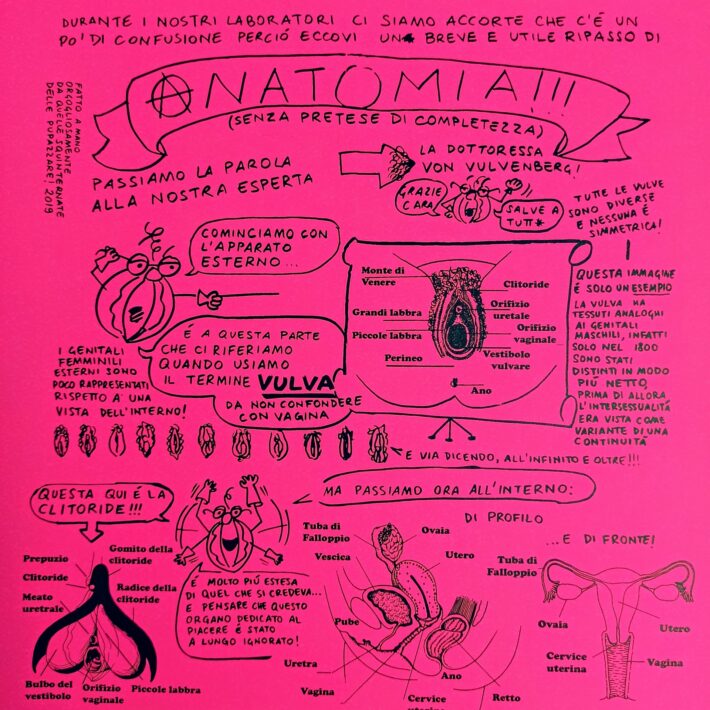 DURANTE I NOSTRI LABORATORI CI SIAMO ACCORTE CHE C'É UN
PO' DI CONFUSIONE PERCIÓ ECCOVI UN BREVE E UTILE RIPASSO DI
ANATOMIA!!!
(SENZA PRETESE DI COMPLETEZZA)
FATTO A MANO
ORGOGLIOSAMENTE
DA QUELLE SQUINTERNATE
DELLE PUPAZZARE! 2019
PASSIAMO LA PAROLA
ALLA NOSTRA ESPERTA
LA DOTTORESSA
VON VULVENBERG!
GRAZIE
CARA
SALVE A
TUTT*
TUTTE LE VULVE
SONO DIVERSE
E NESSUNA É
SIMMETRICA!
COMINCIAMO CON
L'APPARATO
ESTERNO...
Monte di
Venere
Grandi labbra
Piccole labbra
Perineo
Clitoride
Orifizio
uretale
Orifizio
vaginale
Vestibolo
vulvare
Ano
QUESTA IMMAGINE
É SOLO UN ESEMPIO
LA VULVA HA
TESSUTI ANALOGHI
AI GENITALI
MASCHILI, INFATTI
SOLO NEL 1800
SONO STATI
DISTINTI IN MODO
PIÙ NETTO,
PRIMA DI ALLORA
L'INTERSESSUALITÀ
ERA VISTA COME
VARIANTE DI UNA
CONTINUITÀ
É A QUESTA PARTE
CHE CI RIFERIAMO
QUANDO USIAMO
IL TERMINE VULVA
DA NON CONFONDERE
CON VAGINA
I GENITALI
FEMMINILI
ESTERNI SONO
POCO RAPPRESENTATI
RISPETTO A' UNA
VISTA DELL'INTERNO!
E VIA DICENDO, ALL'INFINITO E OLTRE!!!
QUESTA QUI É LA
CLITORIDE!!!
MA PASSIAMO ORA ALL'INTERNO:
DI PROFILO
...E DI FRONTE!
Prepuzio
Clitoride
Meato
uretrale
Gomito della
clitoride
Radice della
clitoride
Bulbo del
vestibolo
Orifizio
vaginale
Piccole labbra
É MOLTO PIÚ ESTESA
DI QUEL CHE SI CREDEVA...
E PENSARE CHE QUESTO
ORGANO DEDICATO AL
PIACERE É STATO
A LUNGO IGNORATO!
Tuba di
Falloppio
Vescica
Ovaia
Utero
Pube
Uretra
Vagina
Ano
Cervice
uterina
Retto
Tuba di
Falloppio
Ovaia
Cervice
uterina
Utero
Vagina